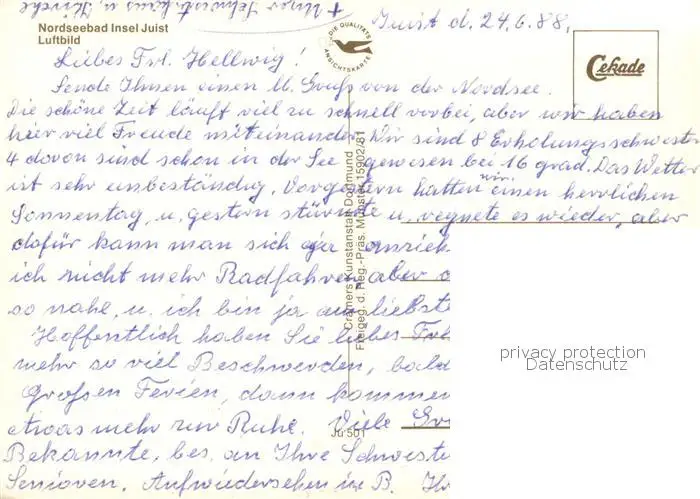 + Unser Schwesternhaus u. Kirche
Nordseebad Insel Juist
Luftbild
DIE QUALITÄTS
ANSICHTSKARTE
Juist d. 24.6.88,
Cekade
Liebes Frl. Hellwig!
Sende Ihnen einen lb. Gruß von der Nordsee.
Die schöne Zeit läuft viel zu schnell vorbei, aber wir haben
hier viel Freude miteinander. Wir sind 8 Erholungsschwest
4 davon sind schon in der See gewesen bei 16 grad. Das Wetter
ist sehr unbeständig. Vorgestern hatten wir einen herrlichen
Sonnentag, u. gestern stürmte u. regnete es wieder, aber
dafür kann man sich ja anzieh
ich nicht mehr Radfahren, aber
so nahe, u. ich bin ja am liebste
Hoffentlich haben Sie liebes Frl
mehr so viel Beschwerden, bald
Großen Ferien, dann kommen
etwas mehr zur Ruhe. Viele Gr
Bekannte, bes. an Ihre Schweste
Senioren. Aufwiedersehen in B. Ihr
Cramers Kunstanstalt Dortmund
Freigeg. d. Reg.-Präs. Münster 15902/81
Ju 501
privacy protection
Datenschutz